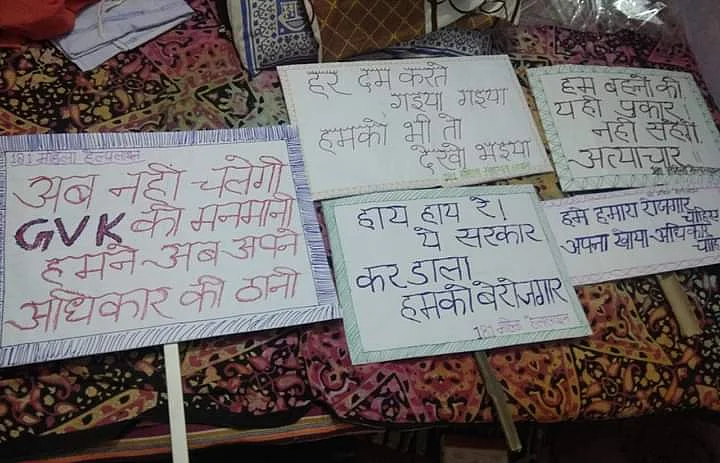 181 महिला हेल्पलाइन
अब नहीं चलेगी
GVK की मनमानी
हमने अब अपने
अधिकार की ठानी
हर दम करते
गइया गइया
हमको भी तो
देखो भइया
हाय हाय रे।
ये सरकार
कर डाला
हमको बेरोजगार
181 महिला हेल्पलाइन
हम बहनो की
यही पुकार
नहीं सहेंगे
अत्याचार॥
हम हमारा राजगार चाहिए
अपना खोया अधिकार चाहिए